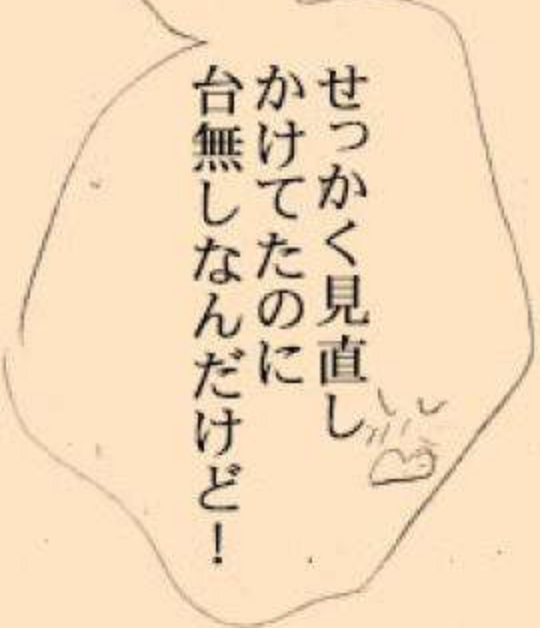 せっかく見直し
かけてたのに
台無しなんだけど!